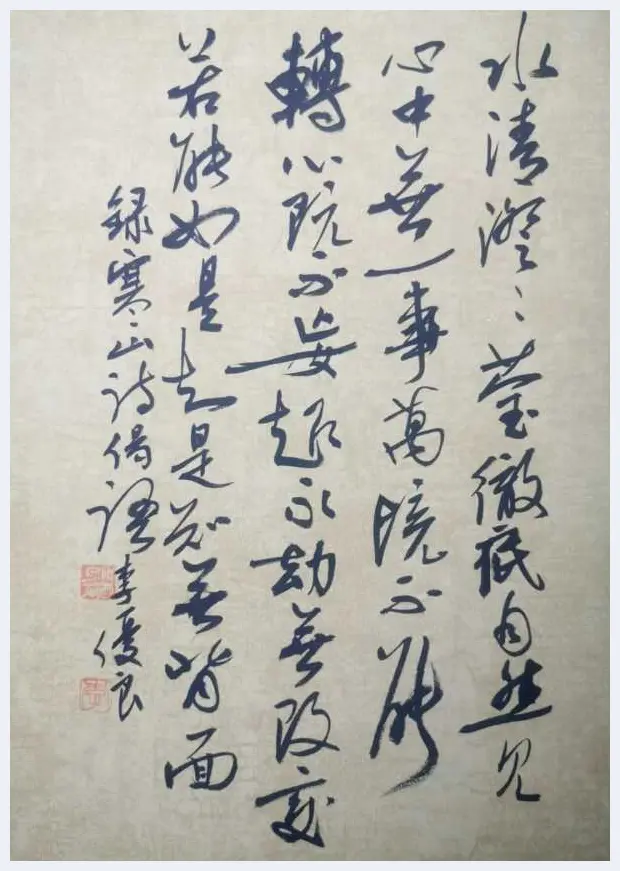 水清澄〻莹徹底自然見
心中無一事萬境不能
轉心既不妄起永劫無改變
若能如是知是知無背面
録寒山詩偈語李優良